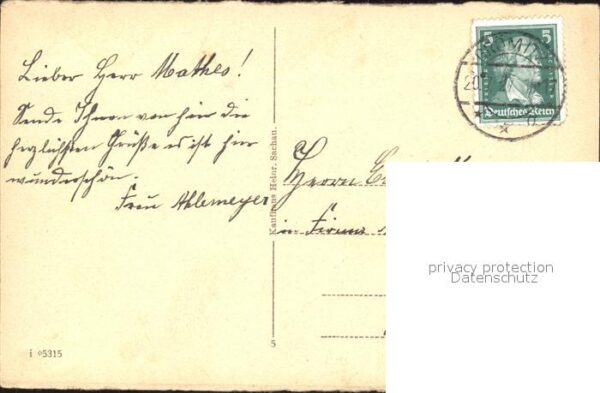 Lieber Herr Mathes!
Sende Ihnen von hier die
herzlichsten Grüße es ist hier
wunderschön.
Frau Ahlemeyer
Kaufhaus Heinr. Sachau.
i °5315
5
5 5
Deutsches Reich
Herrn
in Firma
privacy protection
Datenschutz